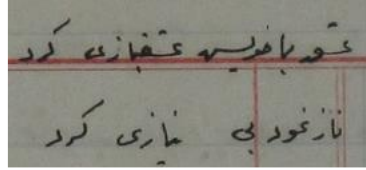 عشق با خویش عشقبازی کرد
ناز خود بی نیازی کرد